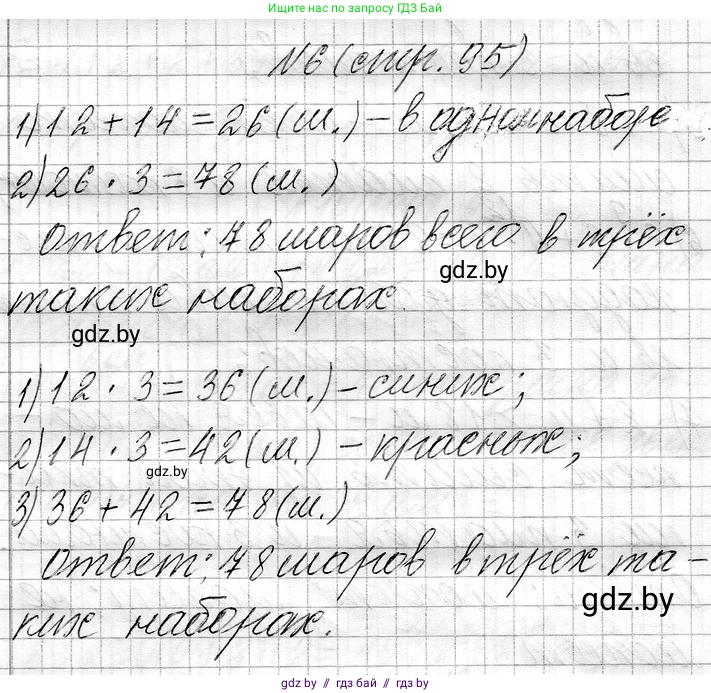 Ищите нас по запросу ГДЗ Бай
№6 (стр. 95)
1) 12 + 14 = 26 (ш.) – в одном наборе
2) 26 · 3 = 78 (ш.)
Ответ: 78 шаров всего в трёх
gdz.by
таких наборах.
gdz.by
1) 12 · 3 = 36 (ш.) – синих;
2) 14 · 3 = 42 (ш.) – красных;
gdz.by
3) 36 + 42 = 78 (ш.)
Ответ: 78 шаров в трёх та-
gdz.by
ких наборах.
gdz.by // гдз бай // gdz.by